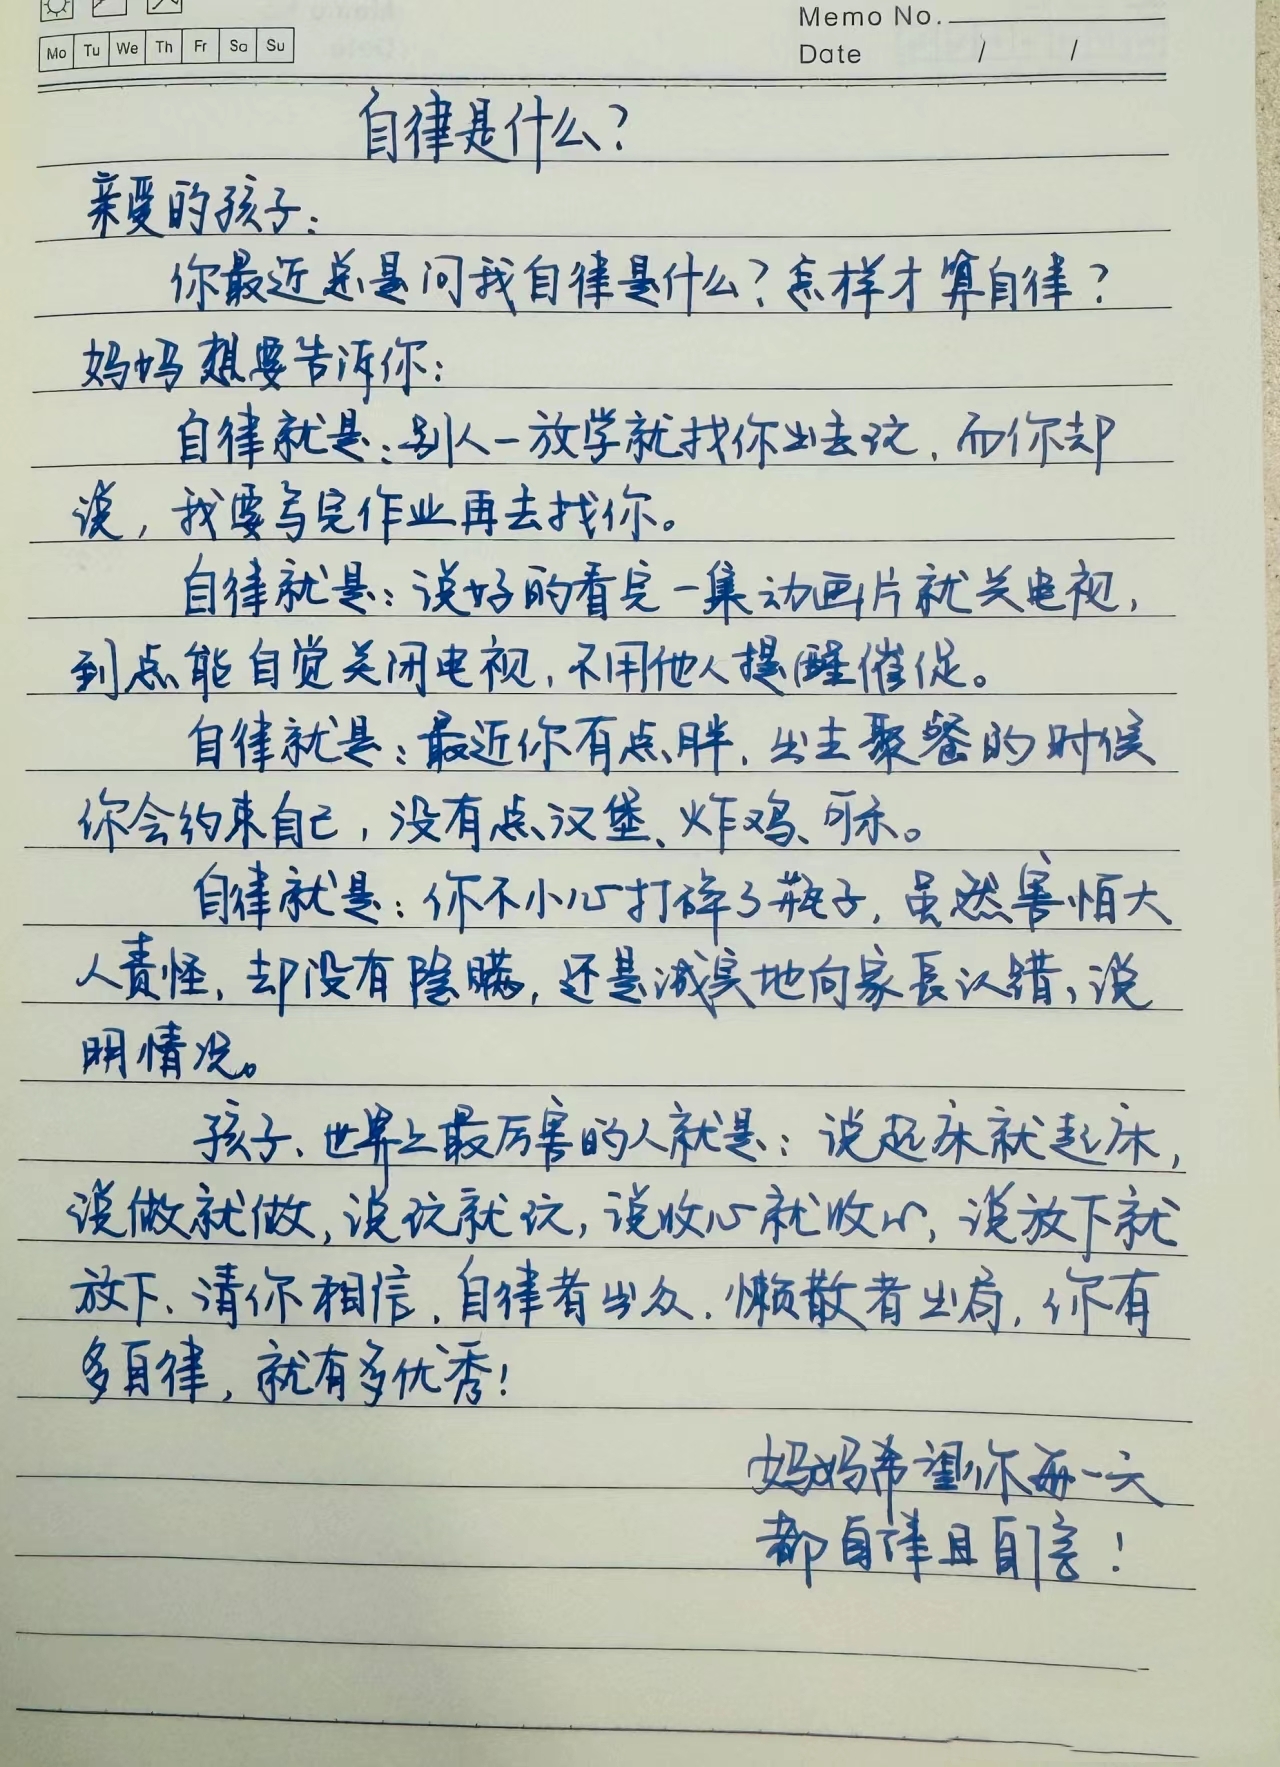 Memo No.
Mo Tu We Th Fr Sa Su
Date / /
自律是什么?
亲爱的孩子:
你最近总是问我自律是什么?怎样才算自律?
妈妈想要告诉你:
自律就是:别人一放学就找你出去玩,而你却
说,我要写完作业再去找你。
自律就是:说好的看完一集动画片就关电视,
到点能自觉关闭电视,不用他人提醒催促。
自律就是:最近你有点胖,出去聚餐的时候
你会约束自己,没有点汉堡、炸鸡、可乐。
自律就是:你不小心打碎了瓶子,虽然害怕大
人责怪,却没有隐瞒,还是诚实地向家长认错,说
明情况。
孩子、世界上最厉害的人就是:说起床就起床,
说做就做,说玩就玩,说收心就收心,说放下就
放下、请你相信,自律者出众,懒散者出局,你有
多自律,就有多优秀!
妈妈希望你每一天
都自律且自信!